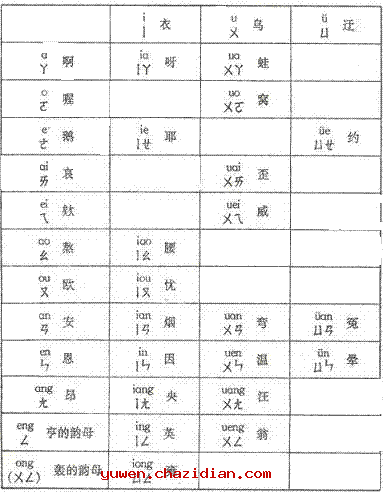 i 衣 u 乌 ü 迂
ㄧ ㄨ ㄩ
a 啊 ia 呀 ua 蛙
ㄚ ㄧㄚ ㄨㄚ
o 喔 uo 窝
ㄛ ㄨㄛ
e 鹅 ie 耶 üe 约
ㄜ ㄧㄝ ㄩㄝ
ai 哀 uai 歪
ㄞ ㄨㄞ
ei 欸 uei 威
ㄟ ㄨㄟ
ao 熬 iao 腰
ㄠ ㄧㄠ
ou 欧 iou 忧
ㄡ ㄧㄡ
an 安 ian 烟 uan 弯 üan 冤
ㄢ ㄧㄢ ㄨㄢ ㄩㄢ
en 恩 in 因 uen 温 ün 晕
ㄣ ㄧㄣ ㄨㄣ ㄩㄣ
ang 昂 iang 央 uang 汪
ㄤ ㄧㄤ ㄨㄤ
eng 亨的韵母 ing 英 ueng 翁
ㄥ ㄧㄥ ㄨㄥ
ong 轰的韵母 iong
(ㄨㄥ)
yuwen.chazidian.com